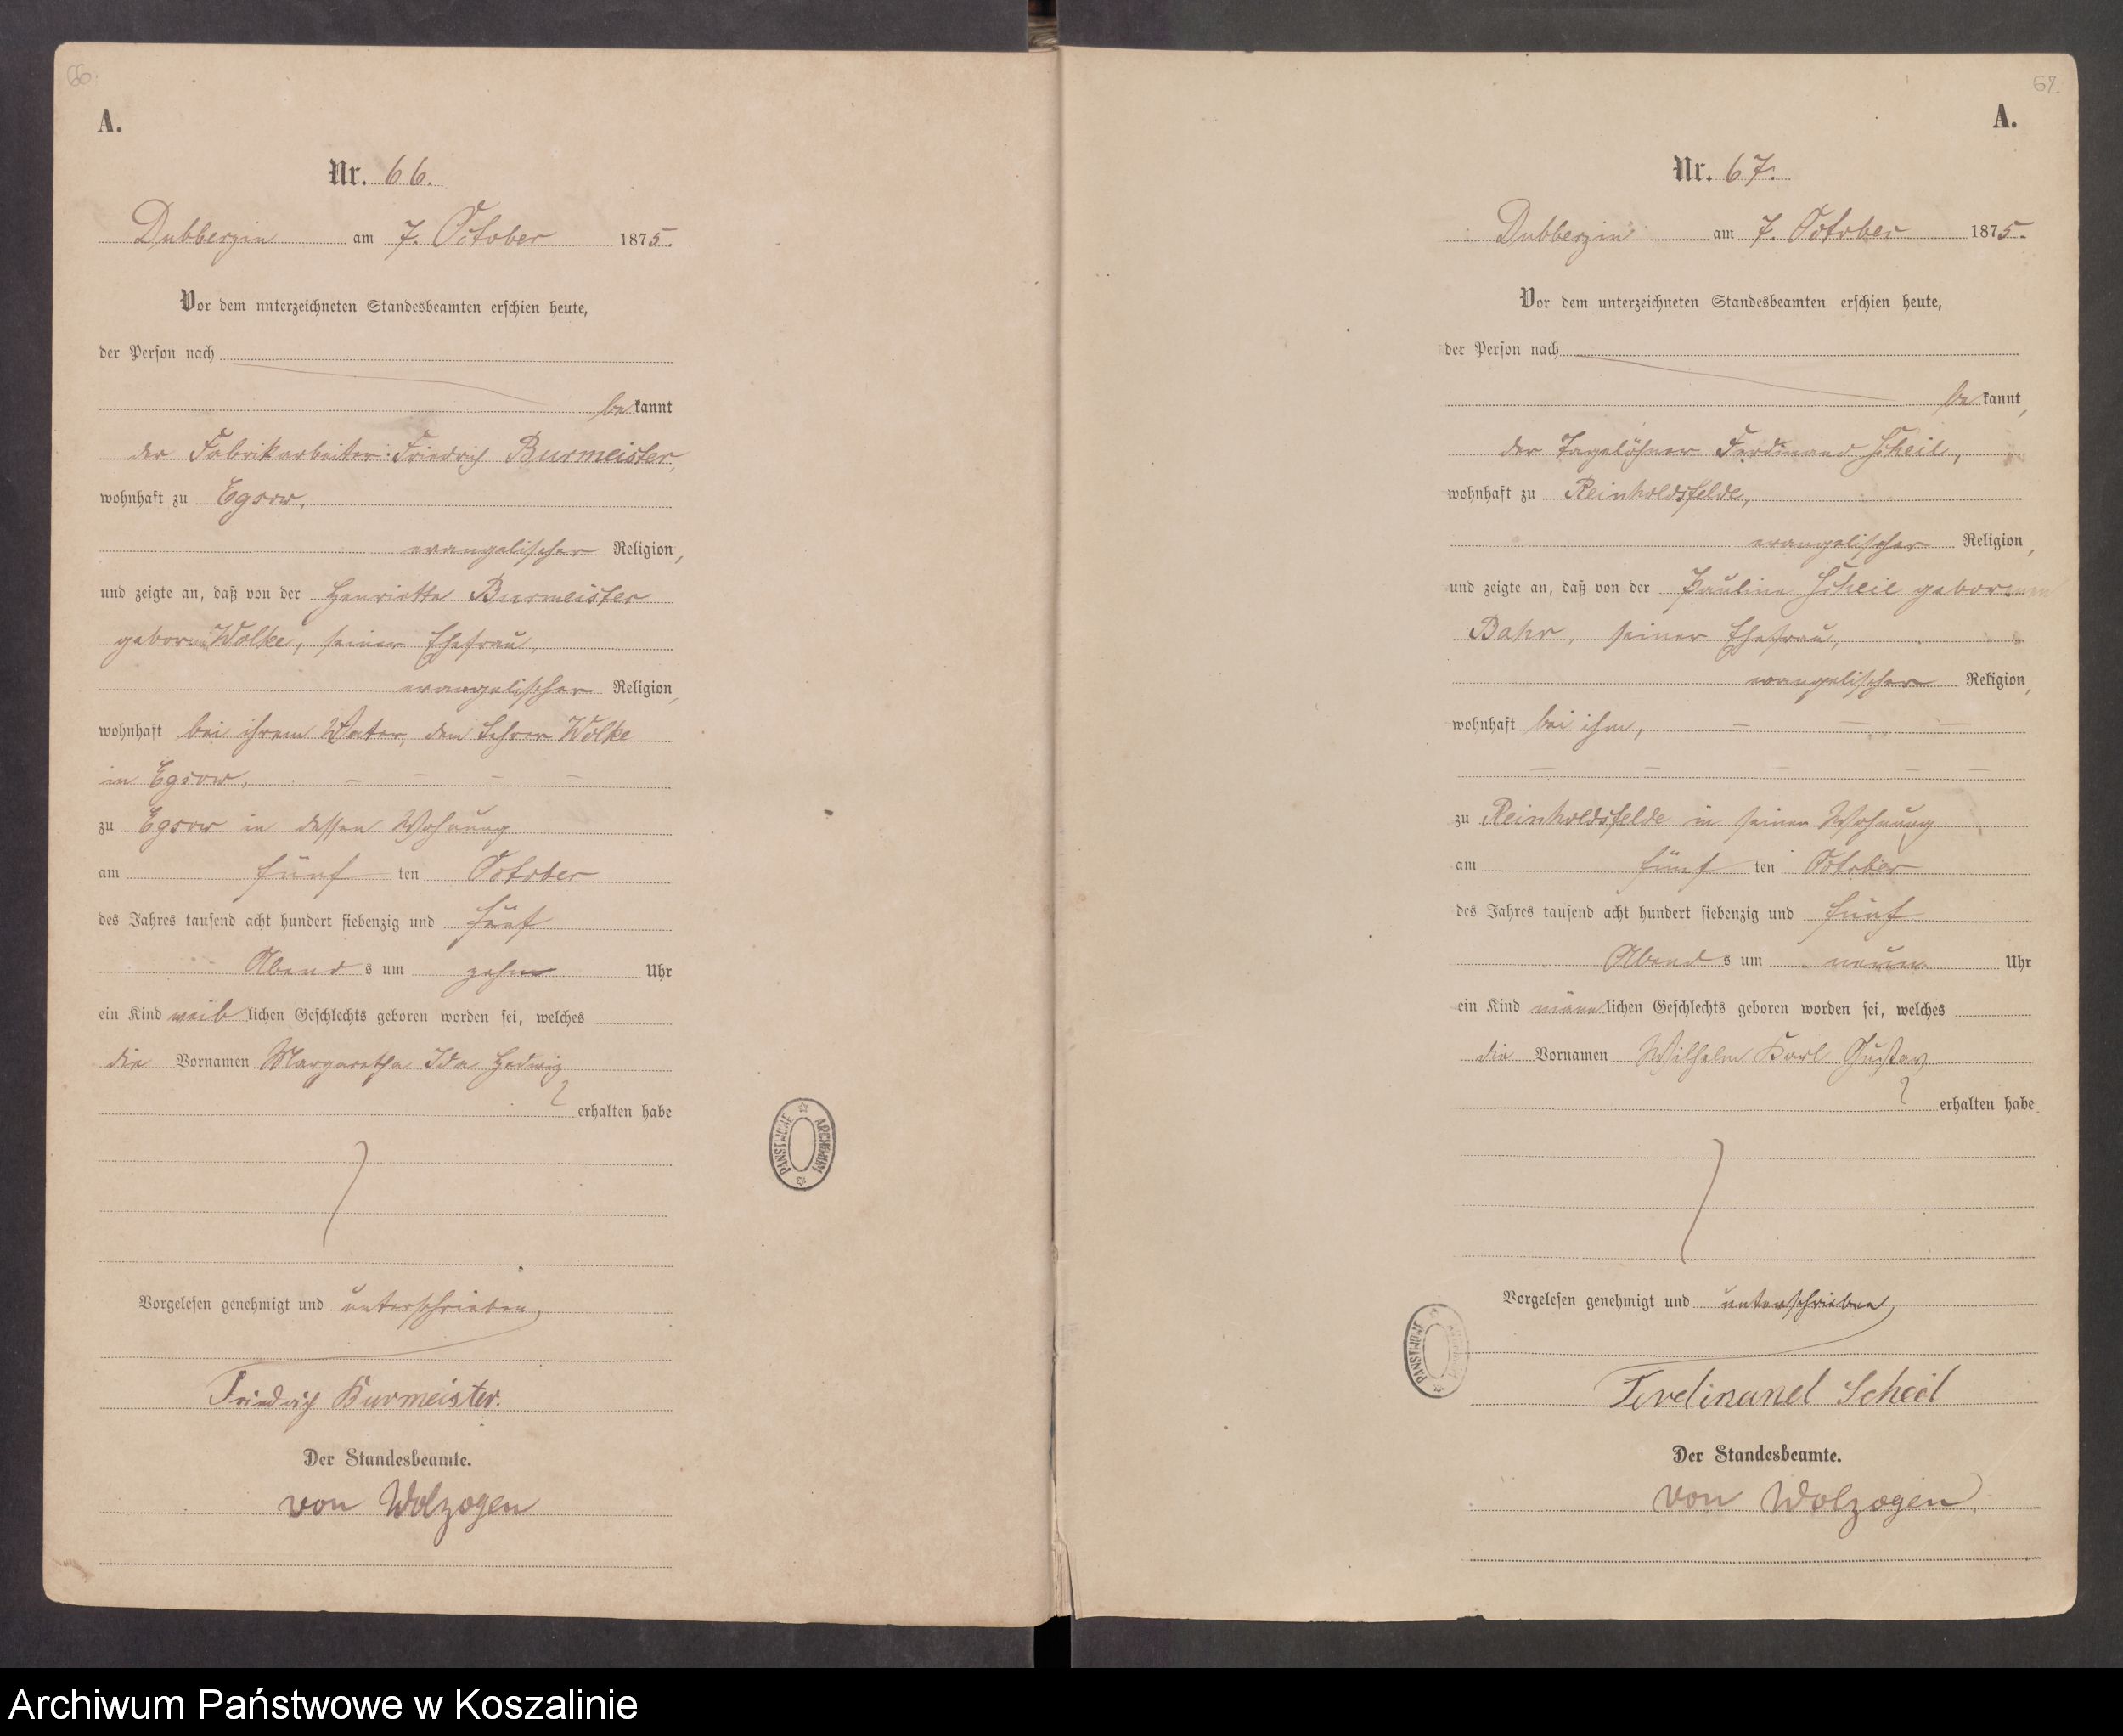 66.
A.
Nr. 66.
Dubberzin am 7. October 1875.
Vor dem unterzeichneten Standesbeamten erschien heute,
der Person nach
bekannt
der Fabrikarbeiter Friedrich Burmeister,
wohnhaft zu Egsow,
evangelischer Religion,
und zeigte an, daß von der Henriette Burmeister
geborenen Wolke, seiner Ehefrau,
evangelischer Religion,
wohnhaft bei ihrem Vater, dem Lehrer Wolke
in Egsow,
zu Egsow in dessen Wohnung
am fünf ten October
des Jahres tausend acht hundert siebenzig und fünf
Abends um zehn Uhr
ein Kind weiblichen Geschlechts geboren worden sei, welches
die Vornamen Margaretha Ida Hedwig
erhalten habe
Vorgelesen genehmigt und unterschrieben,
Friedrich Burmeister.
Der Standesbeamte.
von Wolzogen
ARCHIWUM PAŃSTWOWE
67.
A.
Nr. 67.
Dubberzin am 7. October 1875.
Vor dem unterzeichneten Standesbeamten erschien heute,
der Person nach
bekannt,
der Tagelöhner Ferdinand Scheil,
wohnhaft zu Reinholdsfelde,
evangelischer Religion,
und zeigte an, daß von der Pauline Scheil geborenen
Bahr, seiner Ehefrau,
evangelischer Religion,
wohnhaft bei ihm,
zu Reinholdsfelde in seiner Wohnung
am fünf ten October
des Jahres tausend acht hundert siebenzig und fünf
Abends um neun Uhr
ein Kind männlichen Geschlechts geboren worden sei, welches
die Vornamen Wilhelm Karl Gustav
erhalten habe
Vorgelesen genehmigt und unterschrieben,
ARCHIWUM PAŃSTWOWE
Ferdinand Scheil
Der Standesbeamte.
von Wolzogen.
Archiwum Państwowe w Koszalinie